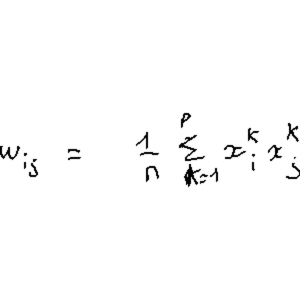 w_{ij} = \frac{1}{n} \sum_{k=1}^{p} x_i^k x_j^k